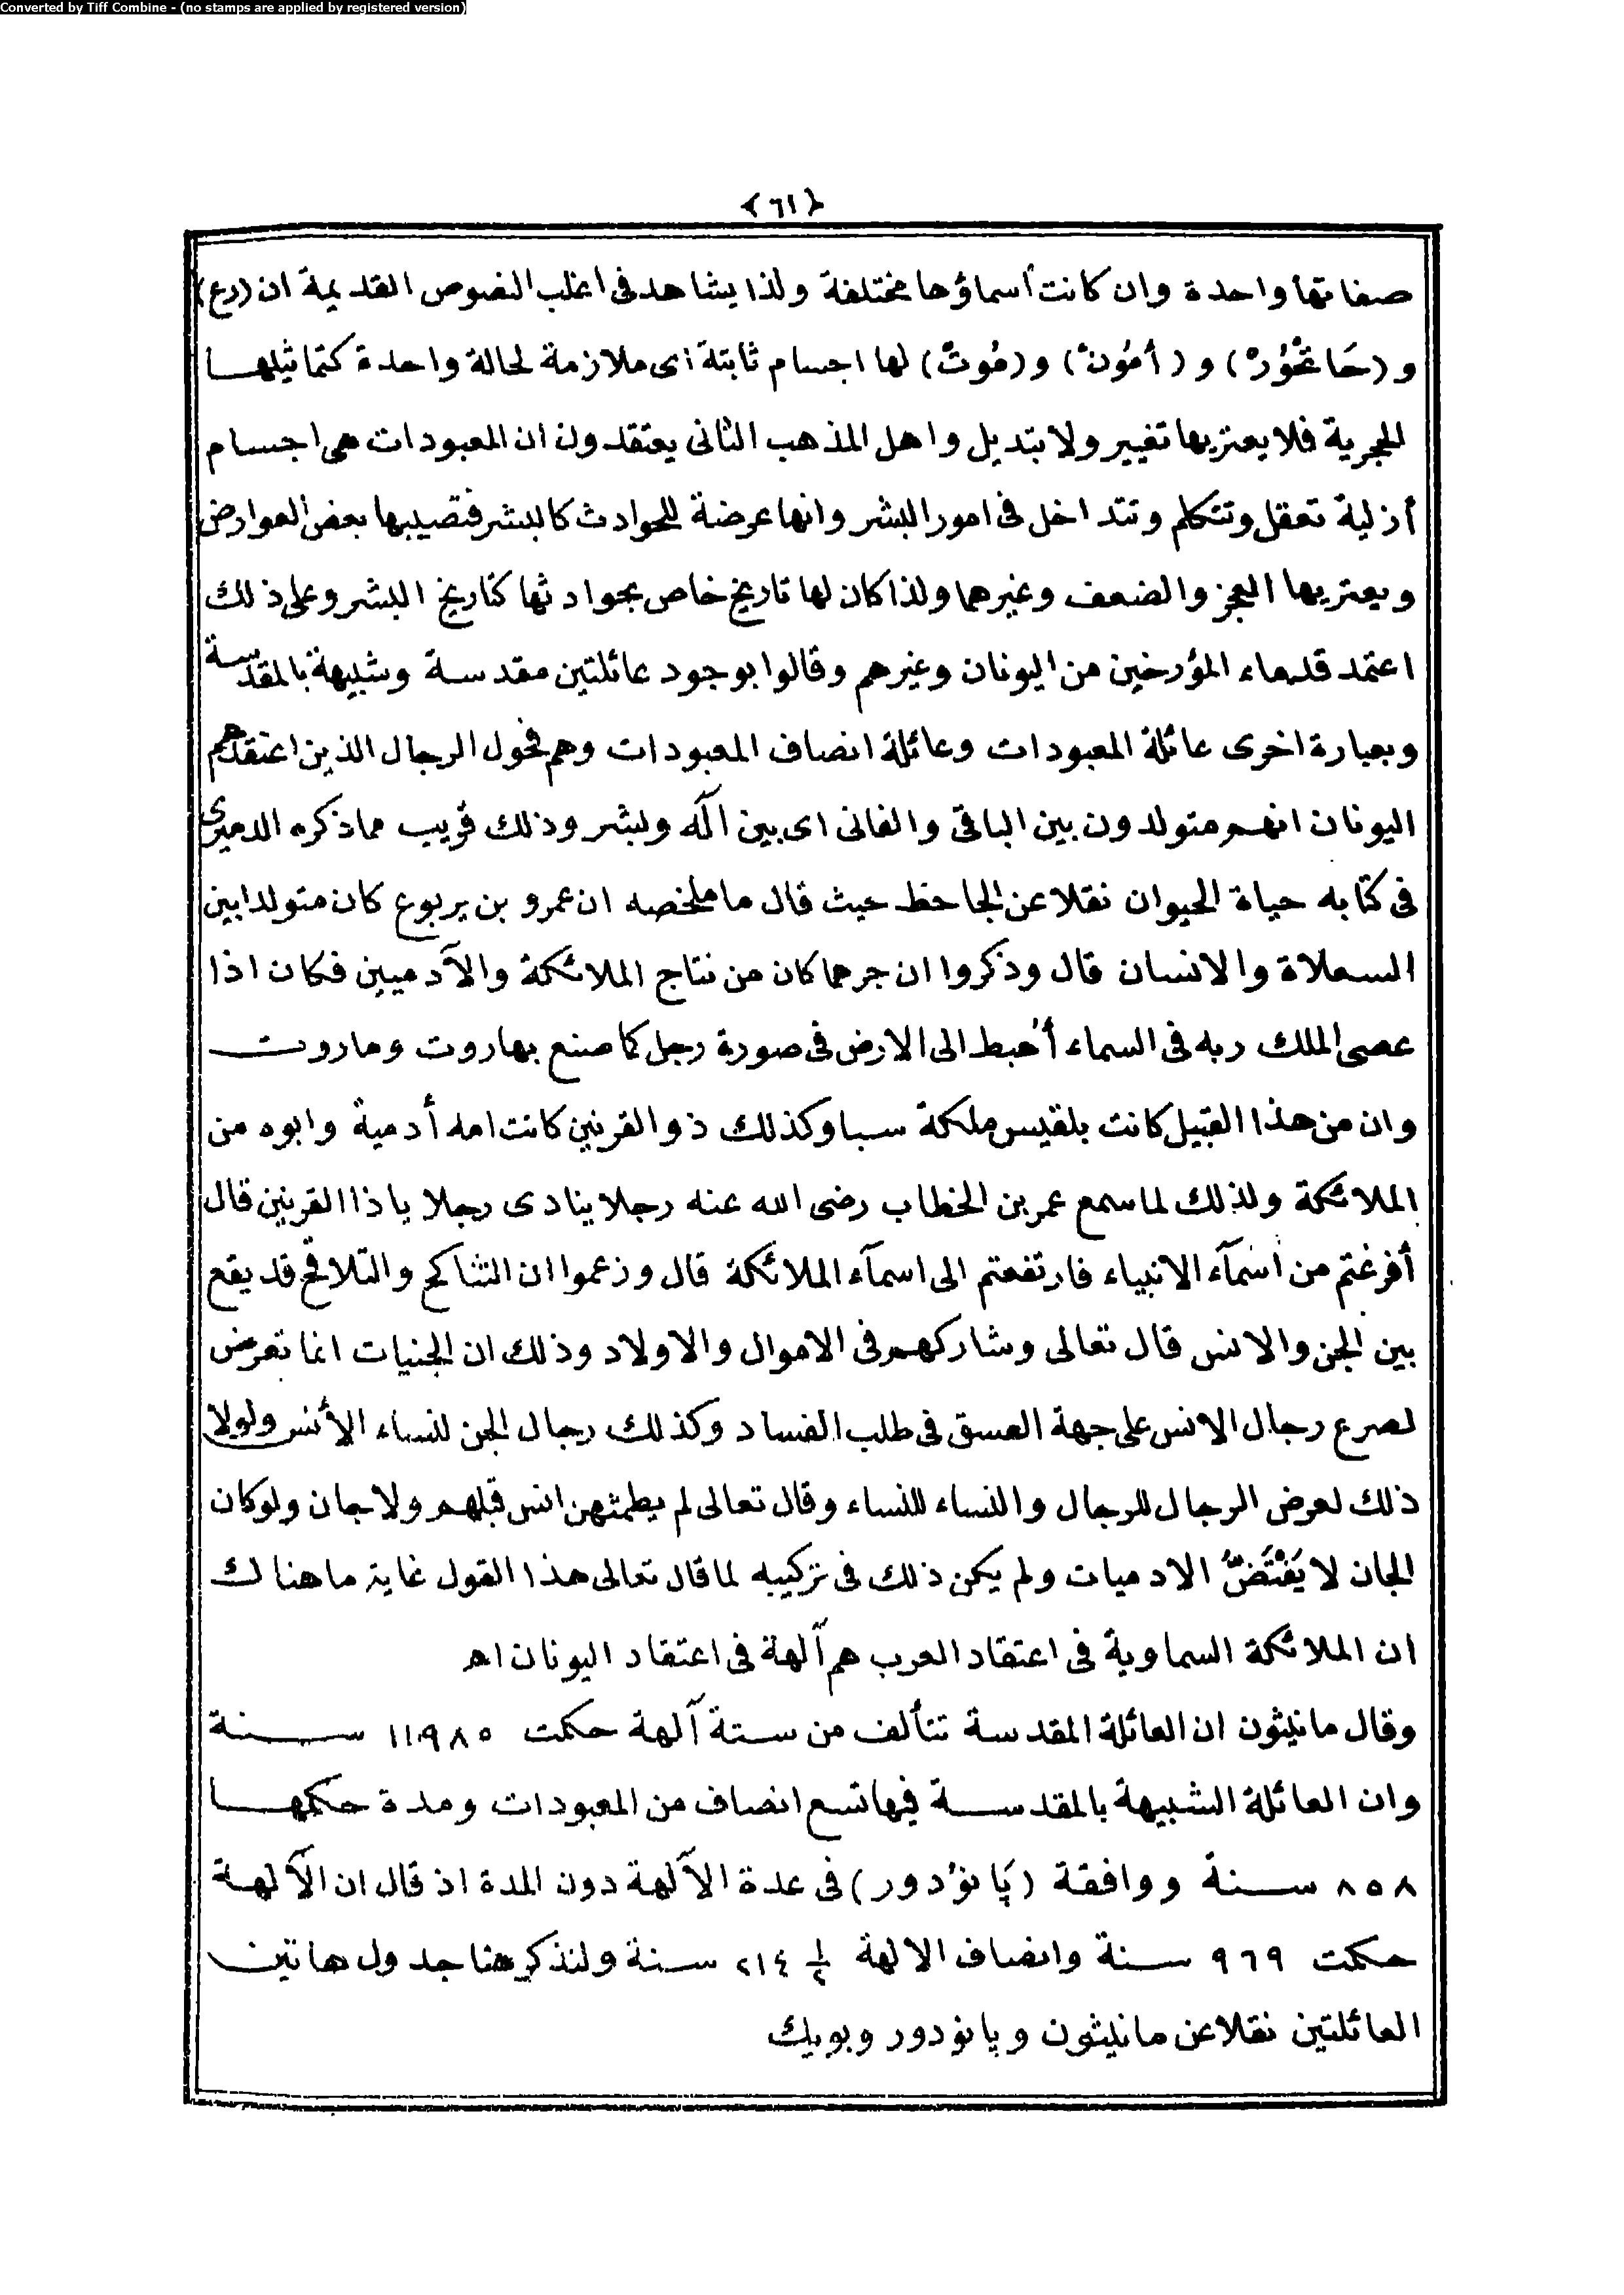 Converted by Tiff Combine - (no stamps are applied by registered version)
﴿٦١﴾
صفاتها واحدة وان كانت أسماؤها مختلفة ولذا يشاهد فى اغلب النصوص القديمة ان (رع)
و (حَاتْحُوُرْ) و (أمُونْ) و (مُوتْ) لها اجسام ثابتة اى ملازمة لحالة واحدة كتماثيلها
الحجرية فلا يعتريها تغيير ولا تبديل واهل المذهب الثانى يعتقدون ان المعبودات هى اجسام
أزلية تعقل وتتكلم وتتداخل فى امور البشر وانها عرضة للحوادث كالبشر فتصيبها بعض العوارض
ويعتريها العجز والضعف وغيرهما ولذا كان لها تاريخ خاص بحوادثها كتاريخ البشر وعلى ذلك
اعتمد قدماء المؤرخين من اليونان وغيرهم وقالوا بوجود عائلتين مقدسة وشبيهة بالمقدسة
وبعبارة اخرى عائلة المعبودات وعائلة انصاف المعبودات وهم فحول الرجال الذين اعتقدهم
اليونان انهم متولدون بين الباقى والفانى اى بين اله وبشر وذلك قريب مما ذكره الدميرى
فى كتابه حياة الحيوان نقلا عن الجاحظ حيث قال ما ملخصه ان عمرو بن يربوع كان متولدا بين
السعلاة والانسان قال وذكروا ان جرهما كان من نتاج الملائكة والآدميين فكان اذا
عصى الملك ربه فى السماء أهبط الى الارض فى صورة رجل كما صنع بهاروت وماروت
وان من هذا القبيل كانت بلقيس ملكة سبا وكذلك ذو القرنين كانت امه أدمية وابوه من
الملائكة ولذلك لما سمع عمر بن الخطاب رضى الله عنه رجلا ينادى رجلا ياذا القرنين قال
أفرغتم من اسمآء الانبياء فارتفعتم الى اسمآء الملائكة قال وزعموا ان التناكح والتلاقح قد يقع
بين الجن والانس قال تعالى وشاركهم فى الاموال والاولاد وذلك ان الجنيات انما تعرض
لصرع رجال الانس على جهة العسق فى طلب الفساد وكذلك رجال الجن لنساء الأنس ولولا
ذلك لعرض الرجال للرجال والنساء للنساء وقال تعالى لم يطمثهن انس قبلهم ولا جان ولو كان
الجان لا يَفْتَضُّ الادميات ولم يكن ذلك فى تركيبه لما قال تعالى هذا القول غاية ما هنالك
ان الملائكة السماوية فى اعتقاد العرب هم آلهة فى اعتقاد اليونان اهـ
وقال مانيثون ان العائلة المقدسة تتألف من ستة آلهة حكمت ١١٩٨٥ سنة
وان العائلة الشبيهة بالمقدسة فيها تسع انصاف من المعبودات ومدة حكمها
٨٥٨ سنة ووافقة (پانوُدور) فى عدة الآلهة دون المدة اذ قال ان الآلهة
حكمت ٩٦٩ سنة وانصاف الالهة ١/٢ ٢١٤ سنة ولنذكر هنا جدول هاتين
العائلتين نقلا عن مانيثون وپانودور وبويك